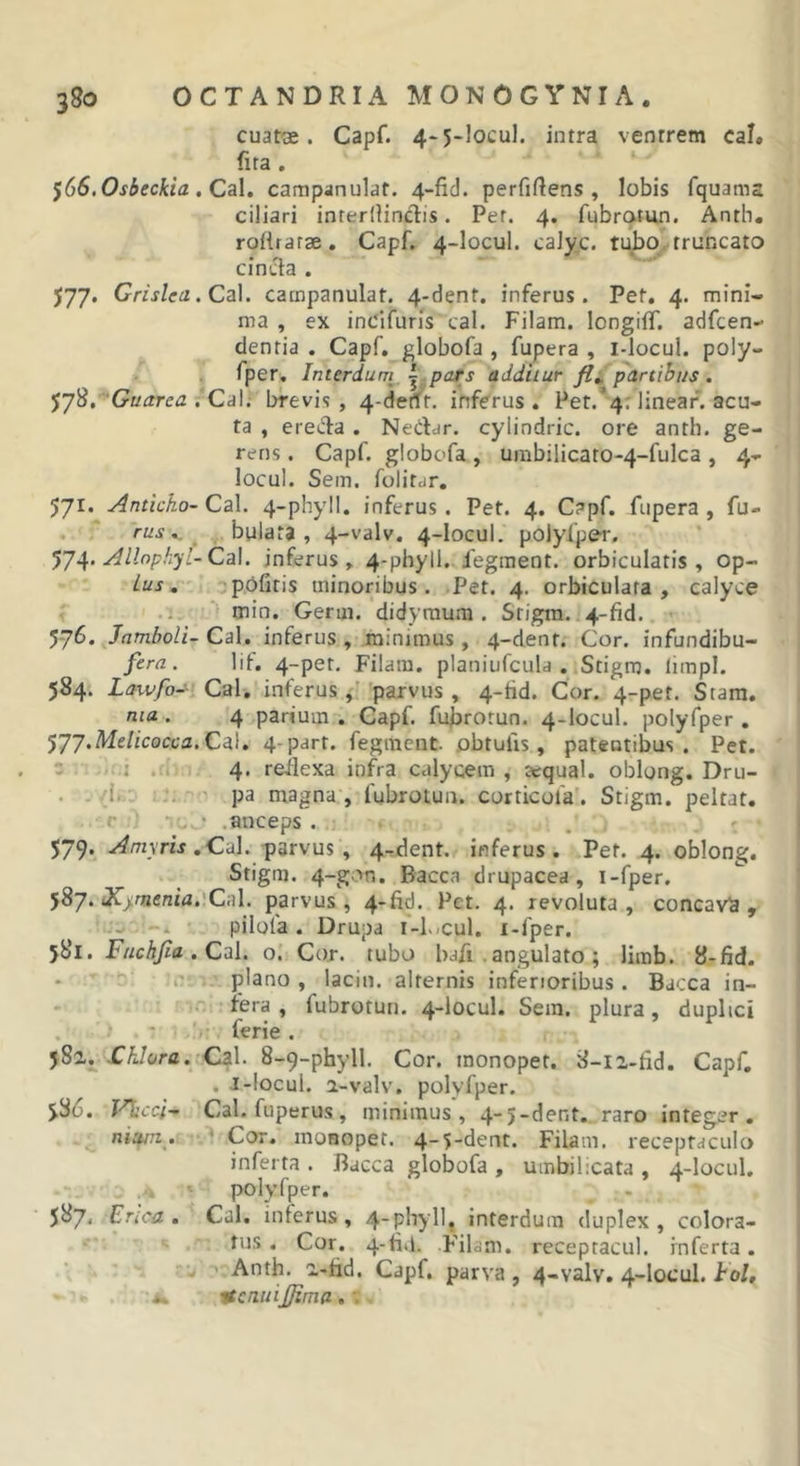 380 OCTANDRIA MONOGYNIA.
cuatæ. Capſ. 4-5-locul. intra ventrem cal.
ſita.
566. Osbeckia. Cal. campanulat. 4-fid. perſiſtens, lobis ſquama
ciliari interſtinctis. Pet. 4. ſubrotun. Anth.
roſtratæ. Capſ. 4-locul. calyc. tubo truncato
cincta.
577. Grislea. Cal. campanulat. 4-dent. inferus. Pet. 4. mini-
ma, ex inciſuris cal. Filam. longiſſ. adſcen-
dentia. Capſ. globoſa, ſupera, 1-locul. poly-
ſper. Interdum pars additur fl. partibus.
578. Guarea. Cal. brevis, 4-dent. inferus. Pet. 4. linear. acu-
ta, erecta. Nectar. cylindric. ore anth. ge-
rens. Capſ. globoſa, umbilicato-4-ſulca, 4-
locul. Sem. ſolitar.
571. Anticho- Cal. 4-phyll. inferus. Pet. 4. Capſ. ſupera, ſu-
rus. bulata, 4-valv. 4-locul. polyſper.
574. Allophyl- Cal. inferus, 4-phyll. ſegment. orbiculatis, op-
lus. poſitis minoribus. Pet. 4. orbiculata, calyce
min. Germ. didymum. Stigm. 4-fid.
576. Jamboli- Cal. inferus, minimus, 4-dent. Cor. infundibu-
fera. lif. 4-pet. Filam. planiuſcula. Stigm. ſimpl.
584. Lawſo- Cal. inferus, parvus, 4-fid. Cor. 4-pet. Stam.
nia. 4 parium. Capſ. ſubrotun. 4-locul. polyſper.
577. Melicocca. Cal. 4-part. ſegment. obtuſis, patentibus. Pet.
4. reflexa infra calycem, æqual. oblong. Dru-
pa magna, ſubrotun. corticoſa. Stigm. peltat.
anceps.
579. Amyris. Cal. parvus, 4-dent. inferus. Pet. 4. oblong.
Stigm. 4-gon. Bacca drupacea, 1-ſper.
587. Xymenia. Cal. parvus, 4-fid. Pet. 4. revoluta, concava,
piloſa. Drupa 1-locul. 1-ſper.
581. Fuchſia. Cal. o. Cor. tubo baſi angulato; limb. 8-fid.
plano, lacin. alternis inferioribus. Bacca in-
fera, ſubrotun. 4-locul. Sem. plura, duplici
ſerie.
582. Chlora. Cal. 8-9-phyll. Cor. monopet. 8-12-fid. Capſ.
1-locul. 2-valv. polyſper.
586. Vacci- Cal. ſuperus, minimus, 4-5-dent. raro integer.
nium. Cor. monopet. 4-5-dent. Filam. receptaculo
inſerta. Bacca globoſa, umbilicata, 4-locul.
polyſper.
587. Erica. Cal. inferus, 4-phyll. interdum duplex, colora-
tus. Cor. 4-fid. Filam. receptacul. inſerta.
Anth. 2-fid. Capſ. parva, 4-valv. 4-locul. Fol.
tenuiſſima.